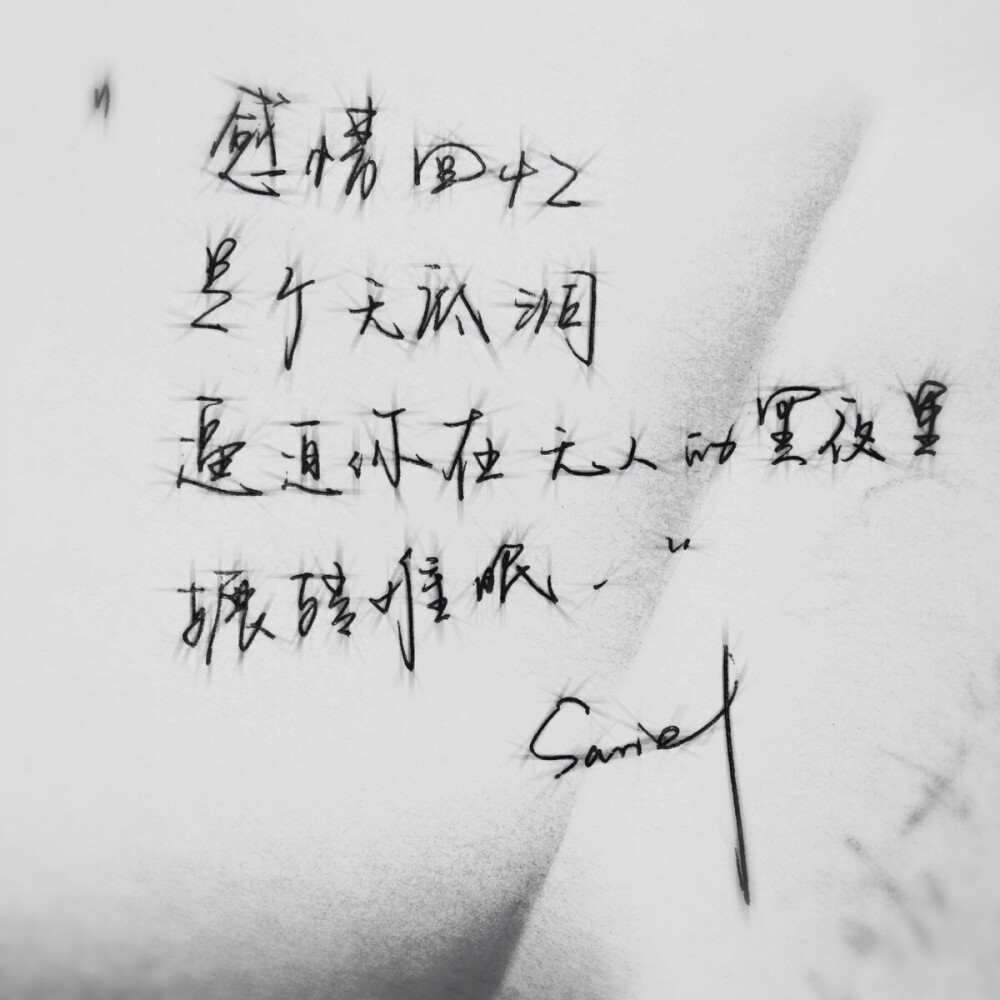 "感情回忆
是个无底洞
逼迫你在无人的黑夜里
辗转催眠."
Sariel